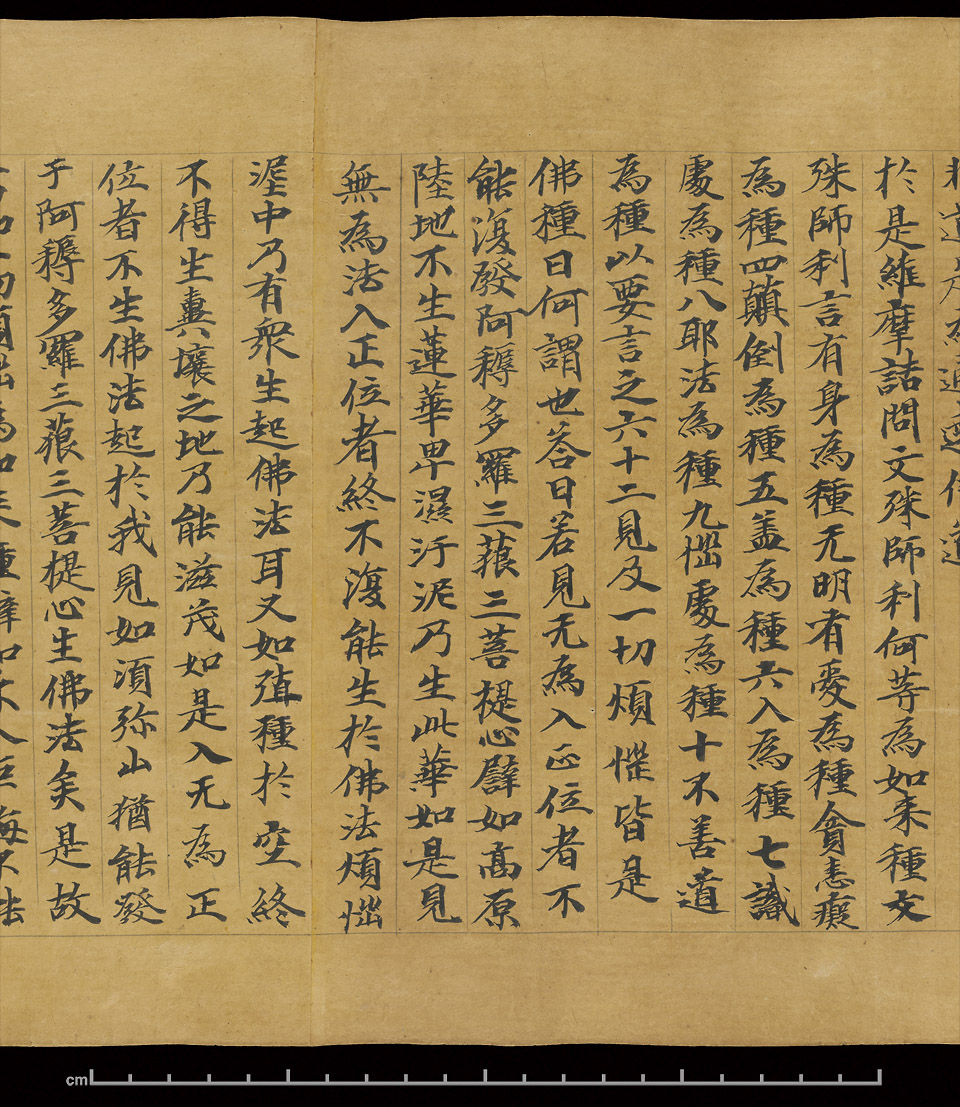 於是維摩詰問文殊師利何等為如来種文
殊師利言有身為種无明有愛為種貪恚癡
為種四顛倒為種五盖為種六入為種七識
處為種八耶法為種九惱處為種十不善道
為種以要言之六十二見及一切煩惱皆是
佛種曰何謂也荅曰若見无為入正位者不
能復發阿耨多羅三藐三菩提心譬如高原
陸地不生蓮華卑濕汙泥乃生此華如是見
無為法入正位者終不復能生於佛法煩惱
泥中乃有衆生起佛法耳又如殖種於空終
不得生糞壤之地乃能滋茂如是入无為正
位者不生佛法起於我見如須弥山猶能發
于阿耨多羅三藐三菩提心生佛法矣是故
cm